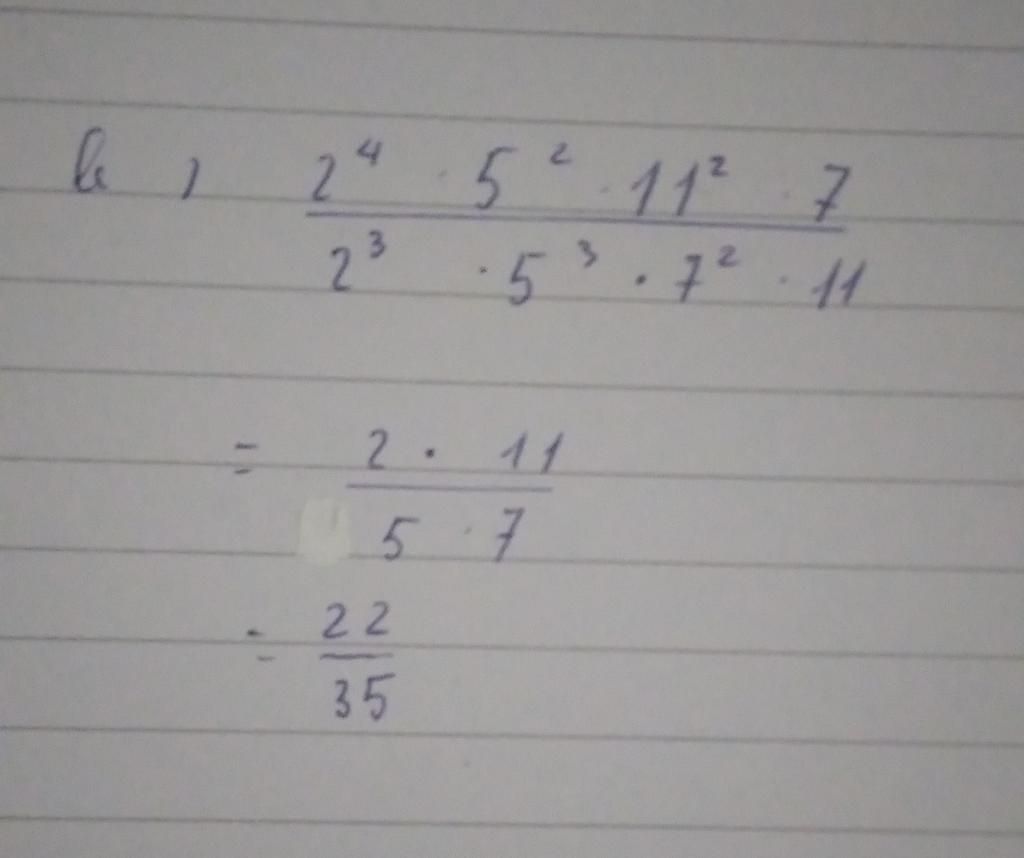 b) 2⁴ · 5² · 11² · 7
2³ · 5³ · 7² · 11
= 2 · 11
5 · 7
= 22
35